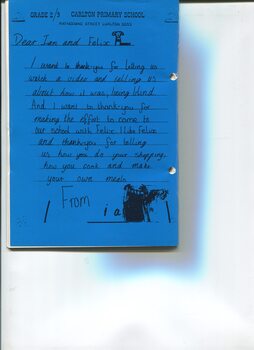 GRADE 2/3 CARLTON PRIMARY SCHOOL
RATHDOWNE STREET CARLTON 3053
Dear Ian and Felix
I want to thankyou for letting us
watch a video and telling us
about how it was, being blind.
And I want to thankyou for
making the effort to come to
our school with Felix. I like Felix
and thankyou, for telling
us how you do your shopping,
how you cook and make
your own meals
From